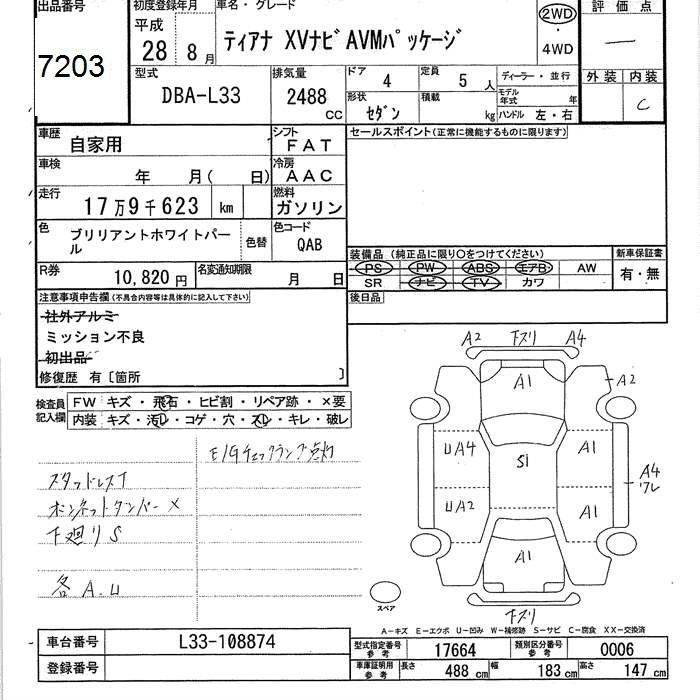 出品番号
7203
初度登録年月
平成
28 8 月
車名・グレード
ティアナ XVナビ AVMパッケージ
2WD
・
4WD
評価点
—
外装 内装
C
型式
DBA-L33
排気量
2488
CC
ドア 4
定員 5 人
ディーラー・並行
形状 セダン
積載 kg
モデル年式 年
ハンドル 左・右
車歴 自家用
シフト FAT
車検 年 月( 日)
冷房 AAC
走行 17万9千623 km
燃料 ガソリン
色 ブリリアントホワイトパール
色替
色コード QAB
R券 10,820 円
名変通知期限 月 日
セールスポイント(正常に機能するものに限ります)
装備品(純正品に限り○をつけてください)
PS PW ABS エアB AW
SR ナビ TV カワ
新車保証書
有・無
後日品
注意事項申告欄(不具合内容等は具体的に記入して下さい)
社外アルミ
ミッション不良
初出品
修復歴 有〔箇所 〕
検査員記入欄
FW キズ・飛石・ヒビ割・リペア跡・×要
内装 キズ・汚レ・コゲ・穴・スレ・キレ・破レ
E/Gチェックランプ点灯
スタッドレスT
ボンネットダンパー ×
下廻りS
各A.U
A2 下ズリ A4
A1
A2
UA4 S1 A1
A4
ワレ
UA2 A1
A1
下ズリ
スペア
A-キズ E-エクボ U-凹み W-補修跡 S-サビ C-腐食 XX-交換済
車台番号 L33-108874
登録番号
型式指定番号 参考 17664
類別区分番号 参考 0006
車庫証明用 参考
長さ 488 cm
幅 183 cm
高さ 147 cm